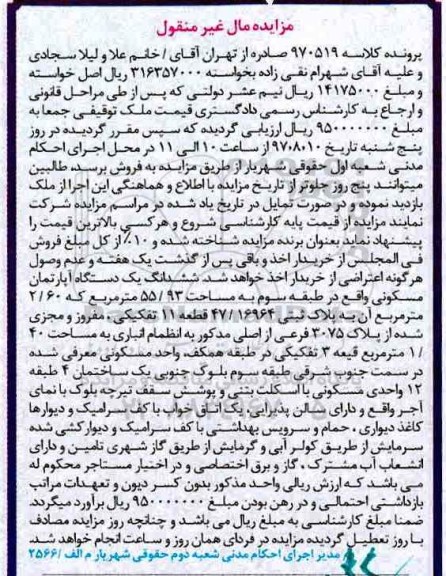 مزایده مال غیر منقول
پرونده کلاسه ۹۷۰۵۱۹ صادره از تهران آقای / خانم علا و لیلا سجادی
و علیه آقای شهرام نقی زاده بخواسته ۳۱۶۳۵۷۰۰۰ ریال اصل خواسته
و مبلغ ۱۴۱۷۵۰۰۰ ریال نیم عشر دولتی که پس از طی مراحل قانونی
و ارجاع به کارشناس رسمی دادگستری قیمت ملک توقیفی جمعا به
مبلغ ۹۵۰۰۰۰۰۰۰ ریال ارزیابی گردیده که سپس مقرر گردیده در روز
پنج شنبه تاریخ ۹۷۰۸۰۱۰ از ساعت ۱۰ الی ۱۱ در محل اجرای احکام
مدنی شعبه اول حقوقی شهریار از طریق مزایده به فروش برسد، طالبین
میتوانند پنج روز جلوتر از تاریخ مزایده با اطلاع و هماهنگی این اجرا از ملک
بازدید نموده و در صورت تمایل در تاریخ یاد شده در مراسم مزایده شرکت
نمایند مزایده از قیمت پایه کارشناسی شروع و هرکسی بالاترین قیمت را
پیشنهاد نماید بعنوان برنده مزایده شناخته شده و ۱۰٪ از کل مبلغ فروش
فی المجلس از خریدار اخذ و باقی پس از گذشت یک هفته و عدم وصول
هرگونه اعتراضی از خریدار اخذ خواهد شد. ششدانگ یک دستگاه آپارتمان
مسکونی واقع در طبقه سوم به مساحت ۵۵/۹۳ مترمربع که ۲/۶۰
مترمربع آن به پلاک ثبتی ۴۷/۱۶۹۶۴ قطعه ۱۱ تفکیکی، مفروز و مجزی
شده از پلاک ۳۰۷۵ فرعی از اصلی مذکور به انظمام انباری به مساحت ۴۰
/۱ مترمربع قیعه ۳ تفکیکی در طبقه همکف، واحد مسکونی معرفی شده
در سمت جنوب شرقی طبقه سوم بلوگ جنوبی یک ساختمان ۴ طبقه
۱۲ واحدی مسکونی با اسکلت بتنی و پوشش سقف تیرچه بلوک با نمای
آجر واقع و دارای سالن پذیرایی، یک اتاق خواب با کف سرامیک و دیوارها
کاغذ دیواری، حمام و سرویس بهداشتی با کف سرامیک و دیوار کشی شده
سرمایش از طریق کولر آبی و گرمایش از طریق گاز شهری تامین و دارای
انشعاب آب مشترک، گاز و برق اختصاصی و در اختیار مستاجر محکوم له
می باشد که ارزش ریالی واحد مذکور بدون کسر دیون و تعهدات مراتب
بازداشتی احتمالی و در رهن بودن مبلغ ۹۵۰۰۰۰۰۰۰ ریال برآورد میگردد.
ضمنا مبلغ کارشناسی به مبلغ ریال می باشد و چنانچه روز مزایده مصادف
با روز تعطیل گردیده مزایده در فردای همان روز و ساعت انجام خواهد شد.
مدیر اجرای احکام مدنی شعبه دوم حقوقی شهریار م الف /۲۵۶۶